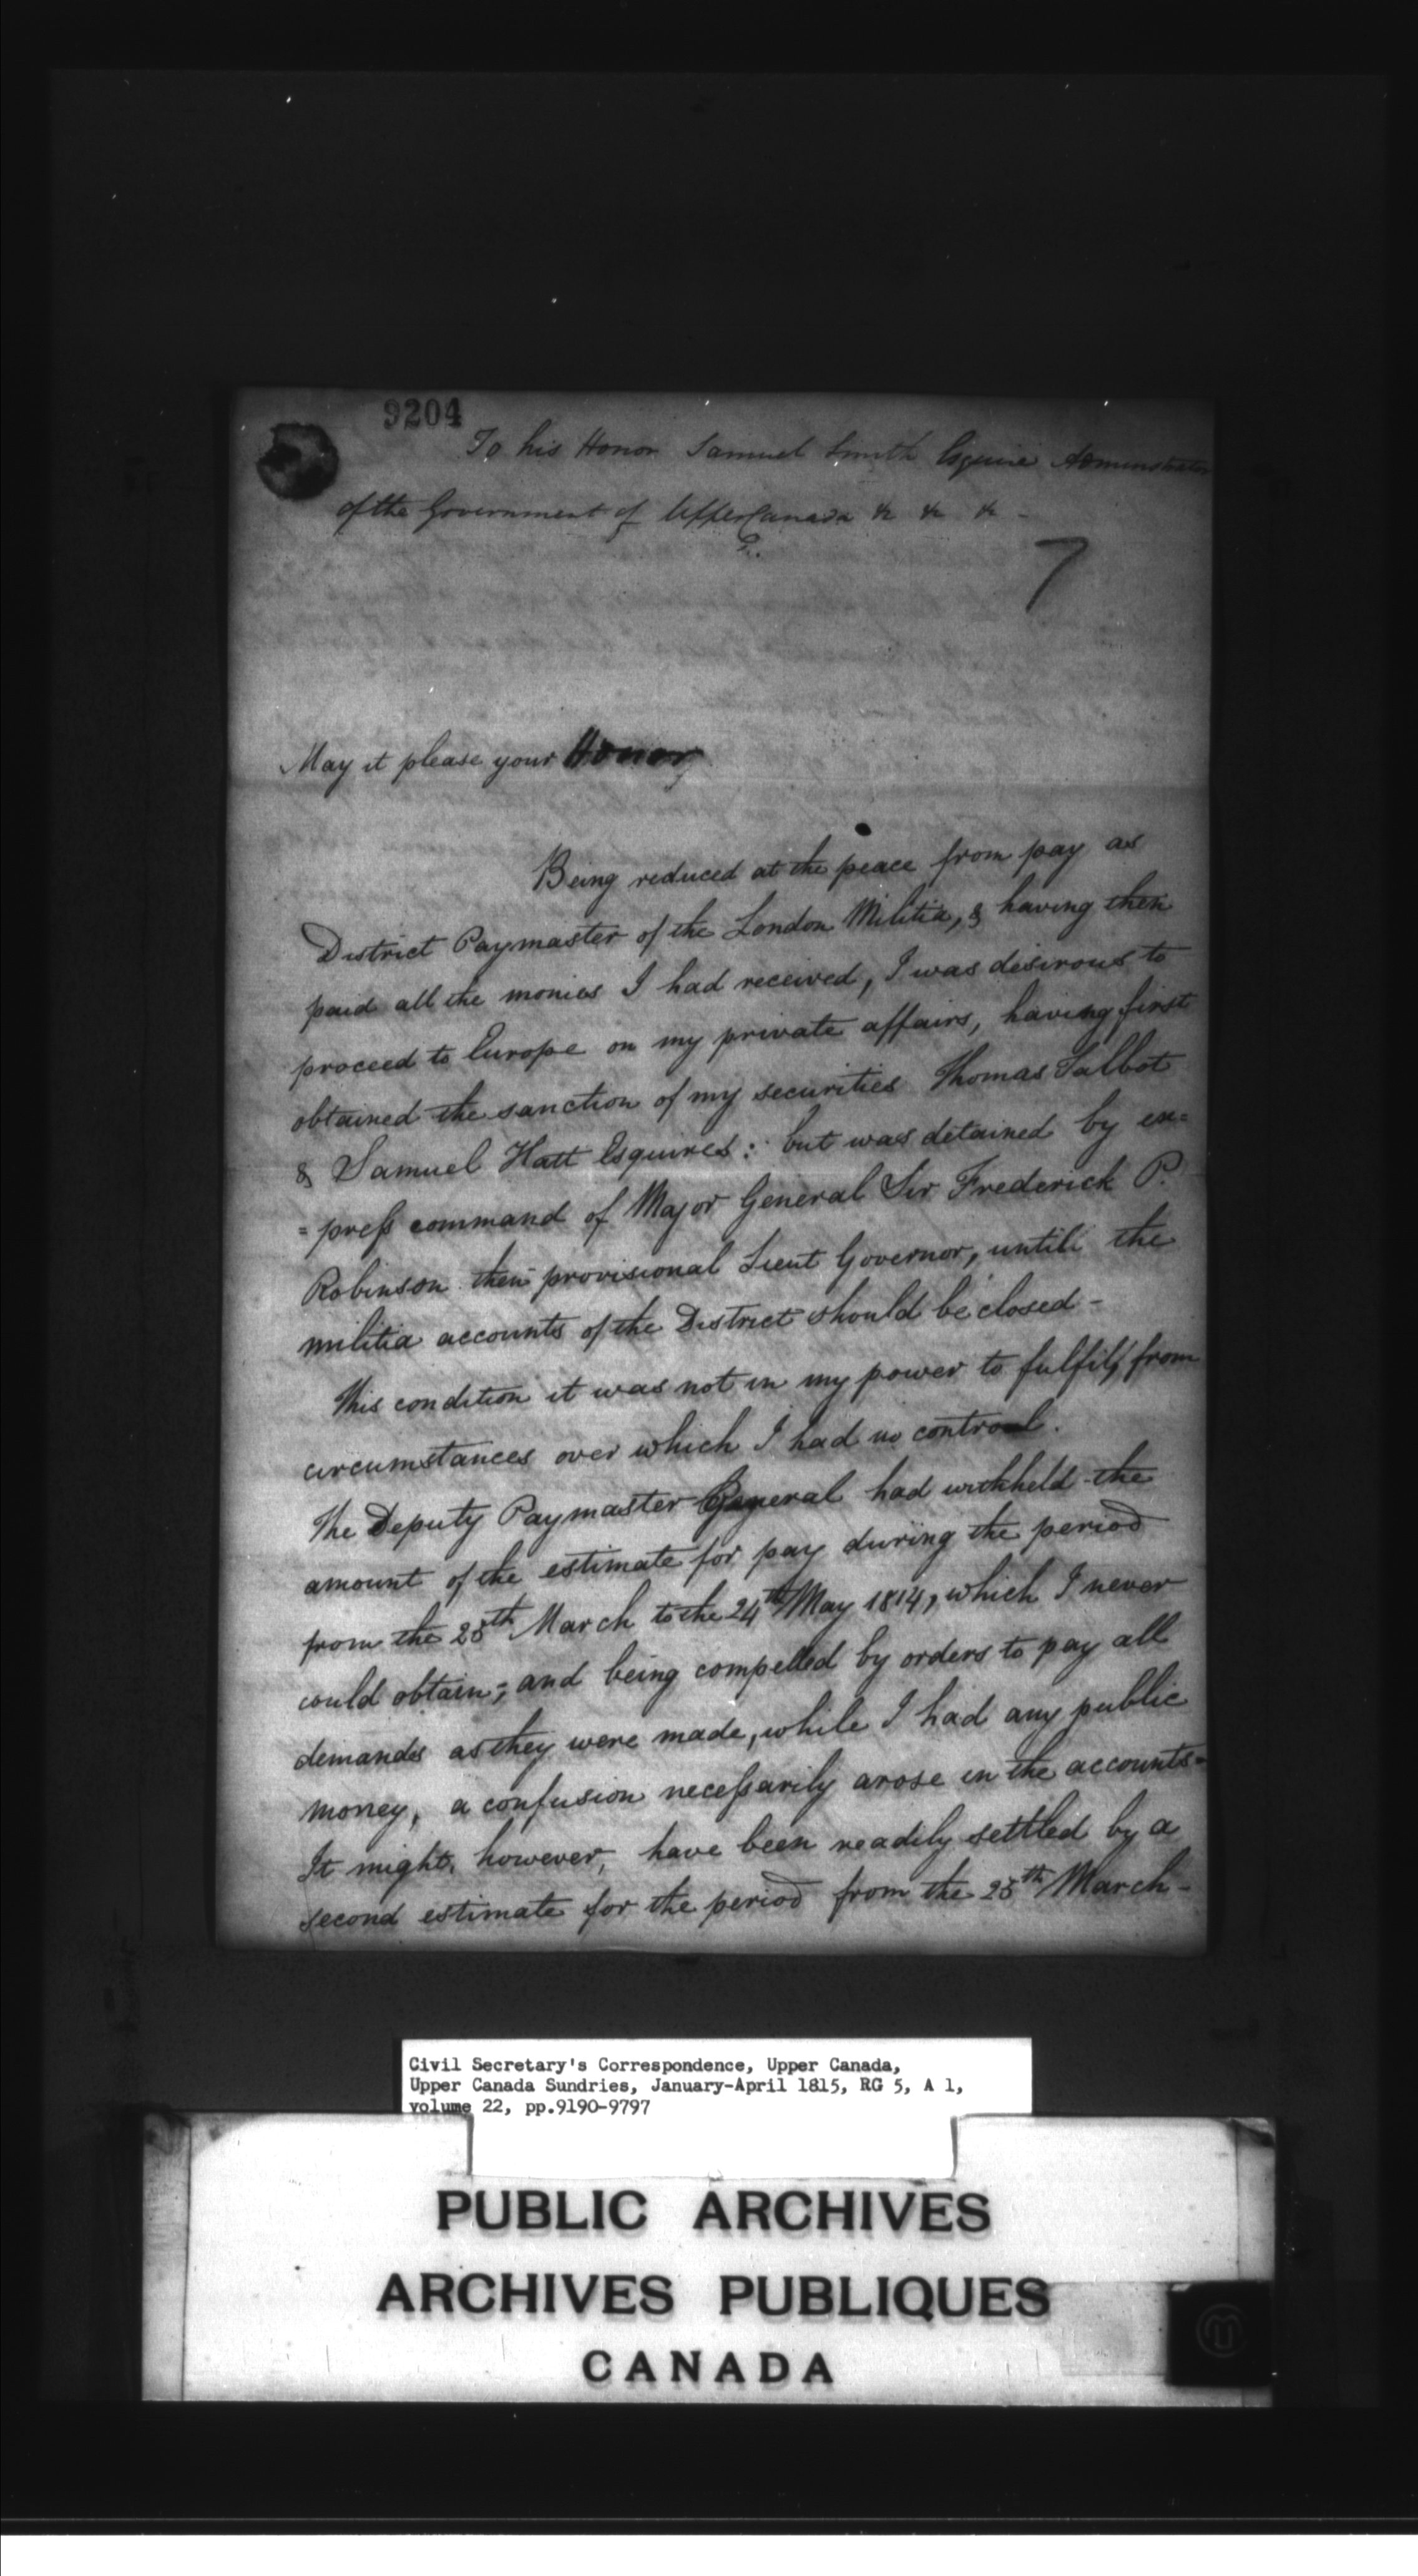 9204
To his Honor Samuel Smith Esquire Administrator
of the Government of Upper Canada &c &c &c -
7
May it please your Honor
Being reduced at the peace from pay as
District Paymaster of the London Militia, & having then
paid all the monies I had received, I was desirous to
proceed to Europe on my private affairs, having first
obtained the sanction of my securities Thomas Talbot
& Samuel Hatt Esquires: but was detained by ex=
=press command of Major General Sir Frederick P.
Robinson then provisional Lieut Governor, until the
militia accounts of the District should be closed -
This condition it was not in my power to fulfil, from
circumstances over which I had no control.
The Deputy Paymaster General had withheld the
amount of the estimate for pay during the period
from the 25th March to the 24th May 1814, which I never
could obtain; and being compelled by orders to pay all
demands as they were made, while I had any public
money, a confusion necessarily arose in the accounts -
It might, however, have been readily settled by a
second estimate for the period from the 25th March -
Civil Secretary's Correspondence, Upper Canada,
Upper Canada Sundries, January-April 1815, RG 5, A 1,
volume 22, pp.9190-9797
PUBLIC ARCHIVES
ARCHIVES PUBLIQUES
CANADA